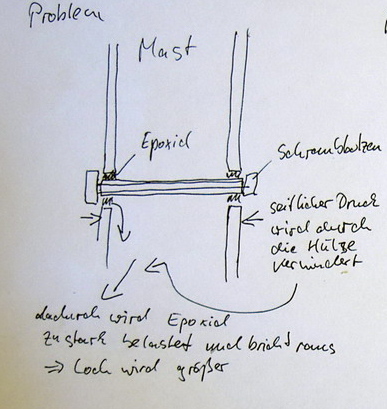 Problem
Mast
Epoxid
Schraubbolzen
seitlicher Druck
wird durch
die Hülze
vermindert
dadurch wird Epoxid
zu stark belastet und bricht raus
⇒ Loch wird größer